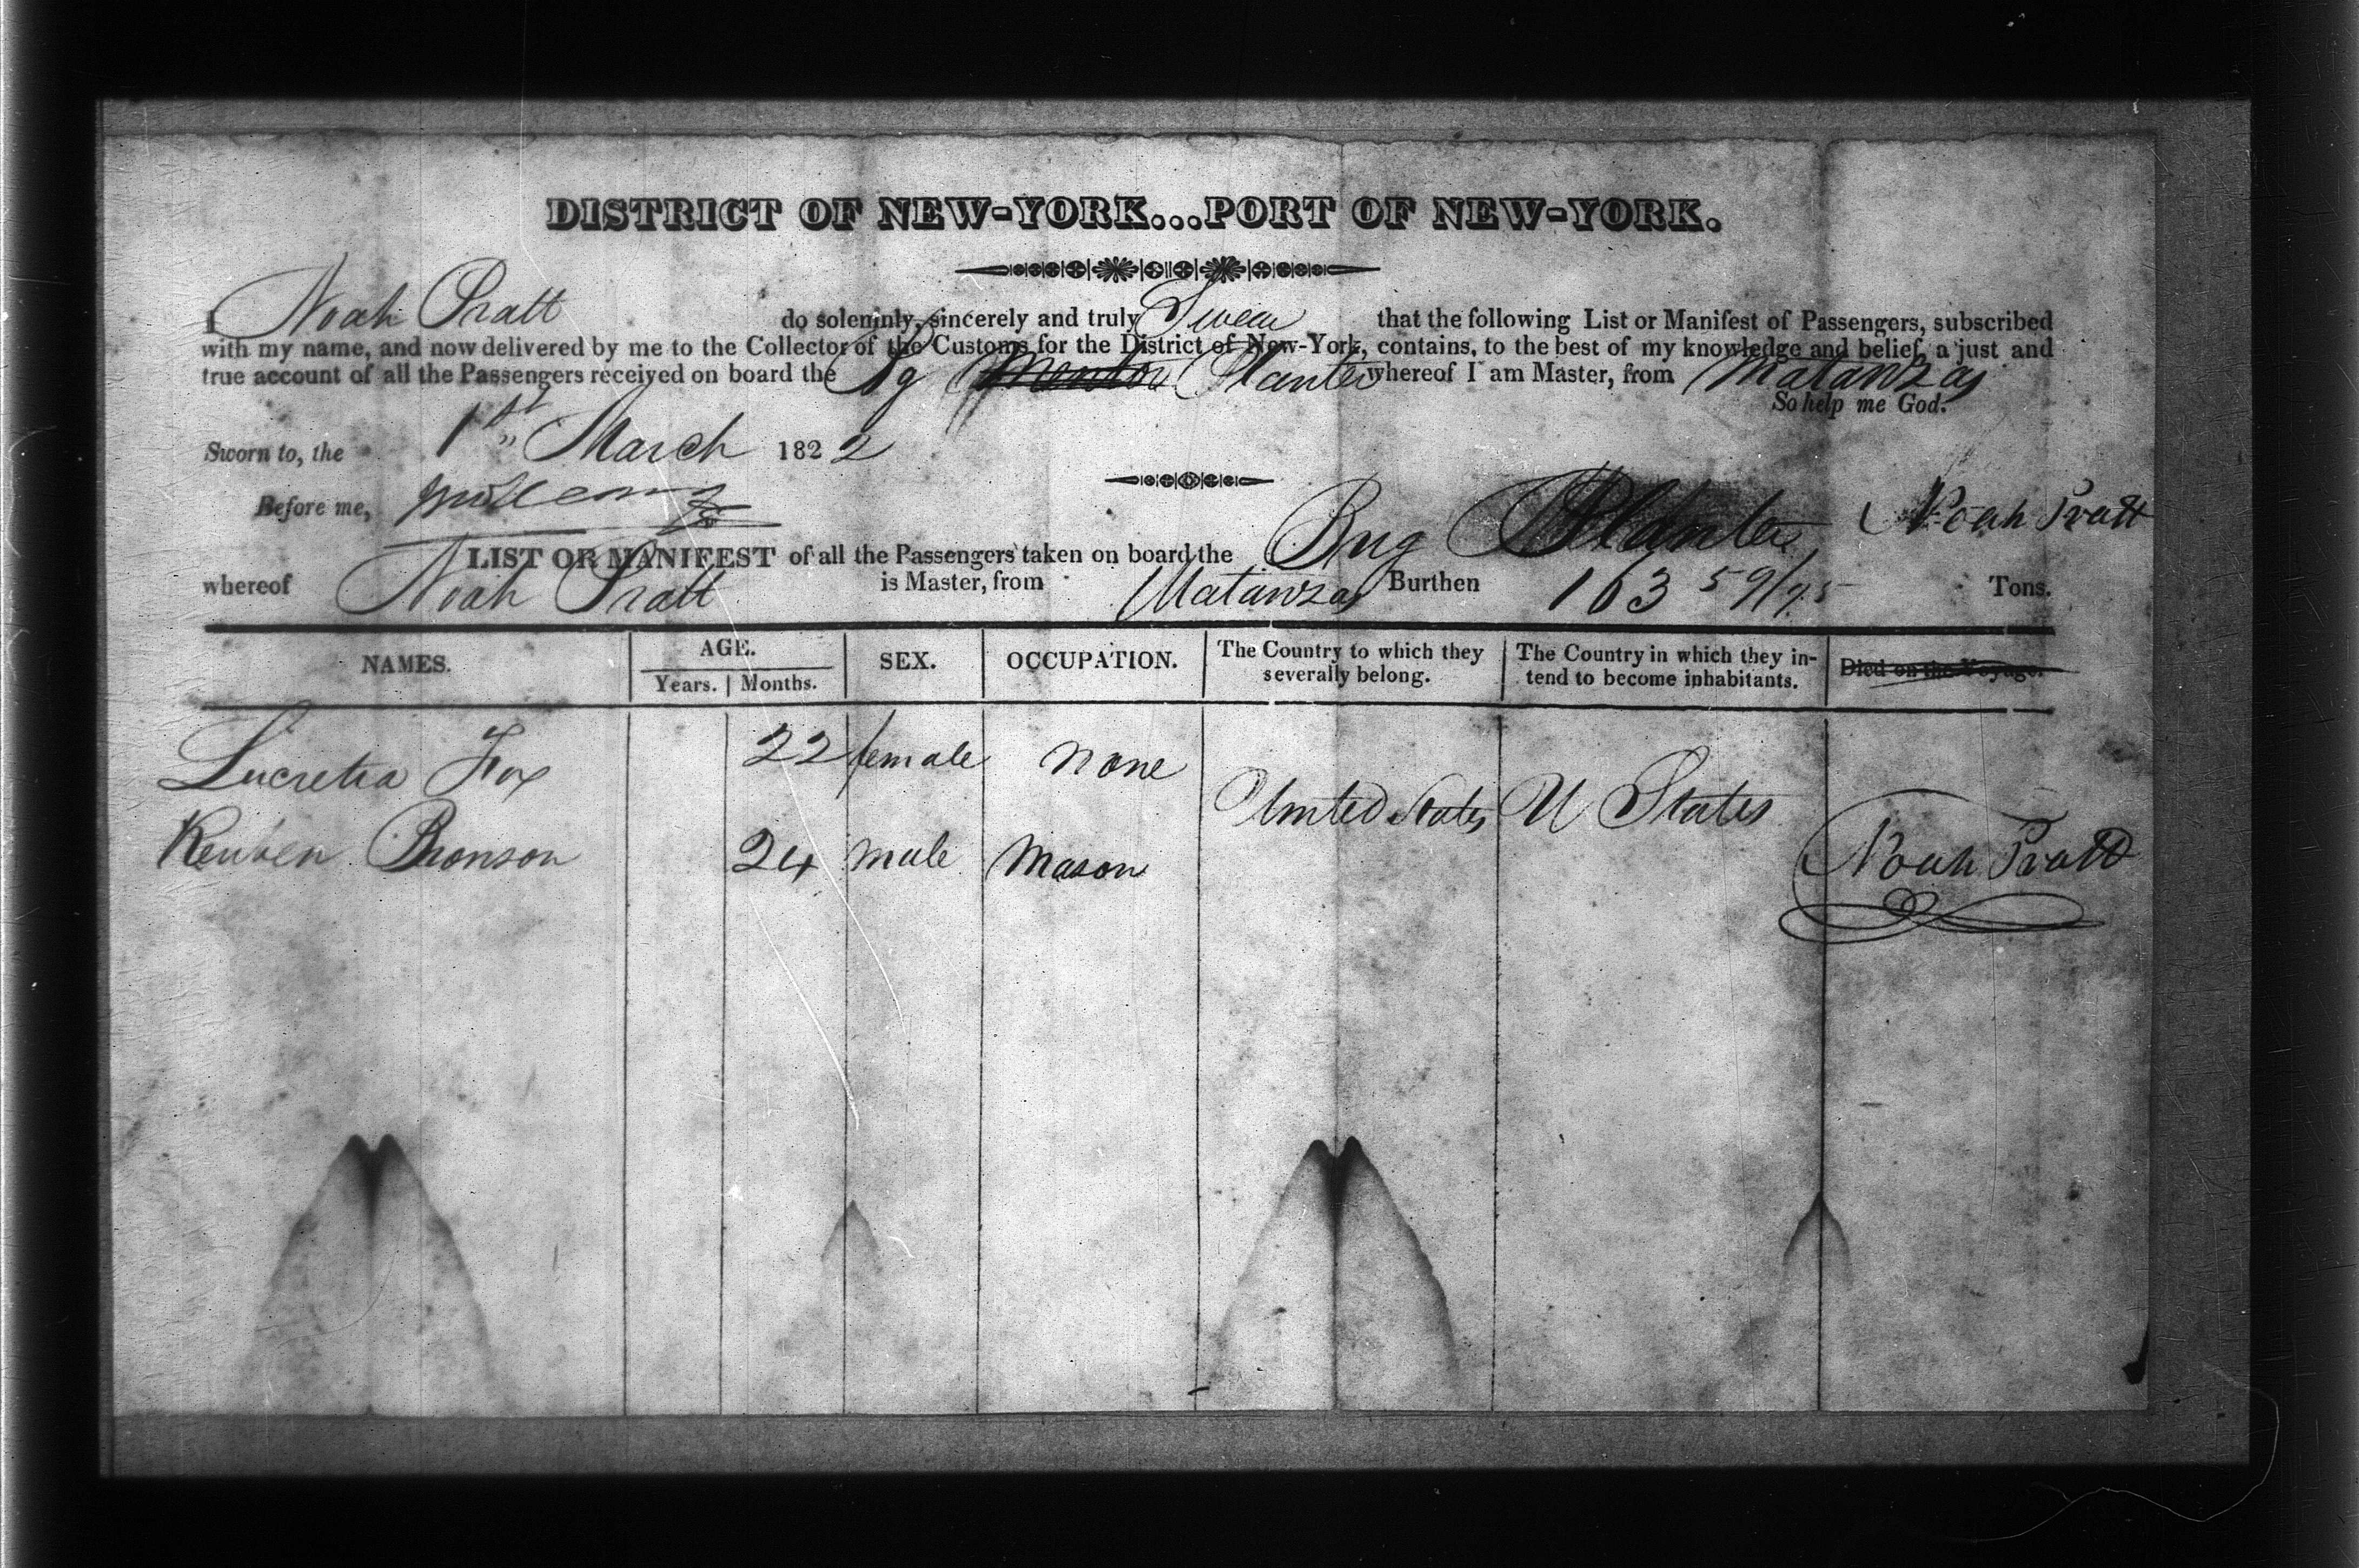 DISTRICT OF NEW-YORK...PORT OF NEW-YORK.
I Noah Pratt do solemnly, sincerely and truly Swear that the following List or Manifest of Passengers, subscribed
with my name, and now delivered by me to the Collector of the Customs for the District of New-York, contains, to the best of my knowledge and belief, a just and
true account of all the Passengers received on board the Bg Planter whereof I am Master, from Matanzas
So help me God.
Sworn to, the 1st March 1822
Before me,
Noah Pratt
LIST OR MANIFEST of all the Passengers taken on board the Brig Planter
whereof Noah Pratt is Master, from Matanzas Burthen 163 59/95 Tons.
NAMES. AGE. SEX. OCCUPATION. The Country to which they severally belong. The Country in which they in-tend to become inhabitants. Died on the Voyage.
Years. Months.
Lucretia Fox 22 female none
United States U States
Reuben Bronson 24 male Mason
Noah Pratt